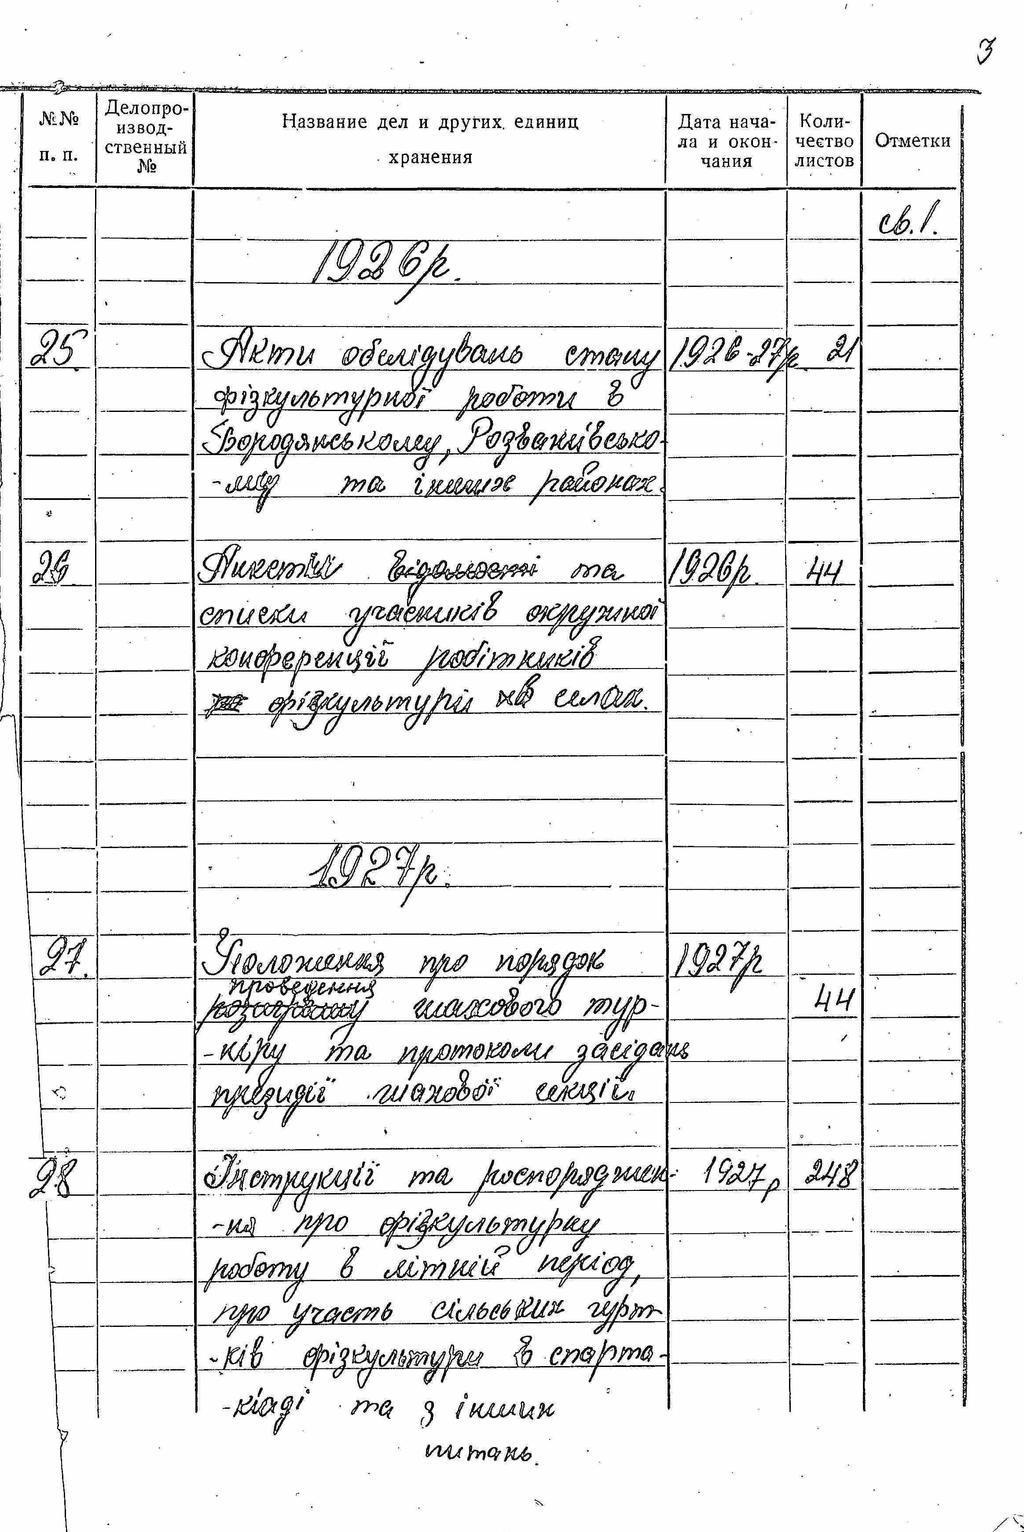 3
№№ п. п.
Делопро-
извод-
ственный
№
Название дел и других единиц
хранения
Дата нача-
ла и окон-
чания
Коли-
чество
листов
Отметки
св. 1.
1926 р.
25. Акти обслідувань стану 1926-27р. 21
фізкультурної роботи в
Бородянському, Розважівсько-
-му та інших районах.
26 Анкети відомості та 1926р. 44
списки учасників окружної
конференції робітників
по фізкультурі на в селах.
1927 р.
27. Положення про порядок 1927р
проведення
розиграшу шахового тур- 44
-ніру та протоколи засідань
президії шахової секції.
28 Інструкції та роспоряджен- 1927р 248
-ня про фізкультурну
роботу в літній період,
про участь сільських гурт-
-ків фізкультури в спарта-
-кіаді та з інших
питань.